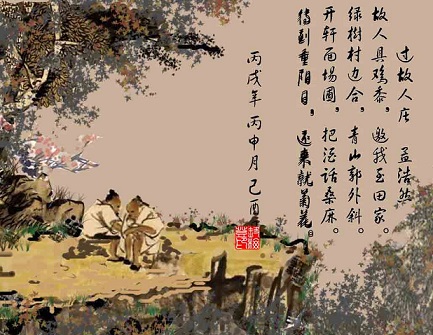 过故人庄 孟浩然
故人具鸡黍，邀我至田家。
绿樹村边合，青山郭外斜。
开轩面場圃，把酒话桑麻。
待到重阳日，还来就菊花。
丙戌年 丙申月 己酉日